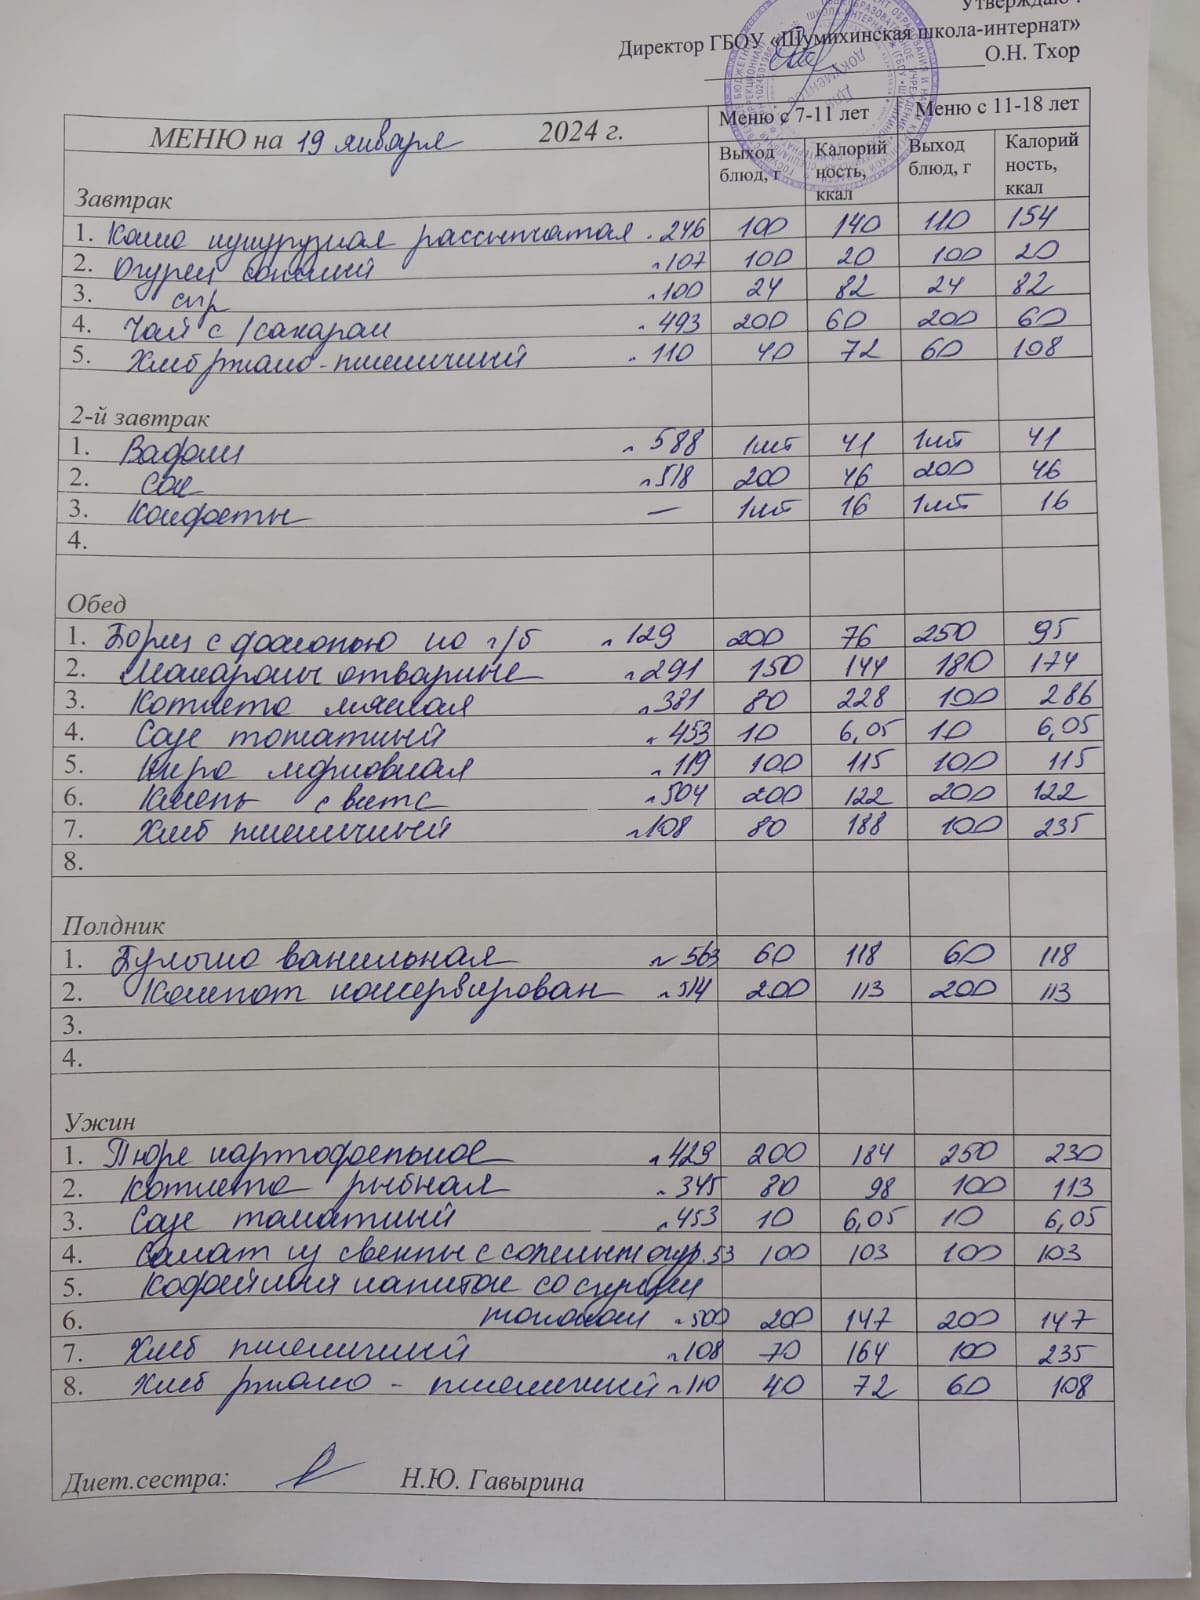 Утверждаю :
Директор ГБОУ «Шумихинская школа-интернат»
О.Н. Тхор
МЕНЮ на 19 января 2024 г. Меню с 7-11 лет Меню с 11-18 лет
Завтрак Выход блюд, г Калорийность, ккал Выход блюд, г Калорийность, ккал
1. Каша кукурузная рассыпчатая . 246 100 140 110 154
2. Огурец соленый 107 100 20 100 20
3. сыр 100 24 82 24 82
4. Чай с/сахаром 493 200 60 200 60
5. Хлеб ржано-пшеничный 110 40 72 60 108
2-й завтрак
1. Вафли 588 1шт 41 1шт 41
2. Сок 518 200 46 200 46
3. Конфеты — 1шт 16 1шт 16
4.
Обед
1. Борщ с фасолью на к/б 129 200 76 250 95
2. Макароны отварные 291 150 144 180 174
3. Котлета мясная 381 80 228 100 286
4. Соус томатный 453 10 6,05 10 6,05
5. Икра морковная 119 100 115 100 115
6. Кисель с вит С 504 200 122 200 122
7. Хлеб пшеничный 108 80 188 100 235
8.
Полдник
1. Булочка ванильная 563 60 118 60 118
2. Компот консервирован 514 200 113 200 113
3.
4.
Ужин
1. Пюре картофельное 429 200 184 250 230
2. Котлета рыбная 345 80 98 100 113
3. Соус томатный 453 10 6,05 10 6,05
4. Салат из свеклы с солеными огур. 53 100 103 100 103
5. Кофейный напиток со сгущен
6. молоком 500 200 147 200 147
7. Хлеб пшеничный 108 70 164 100 235
8. Хлеб ржано - пшеничный 110 40 72 60 108
Диет.сестра: Н.Ю. Гавырина